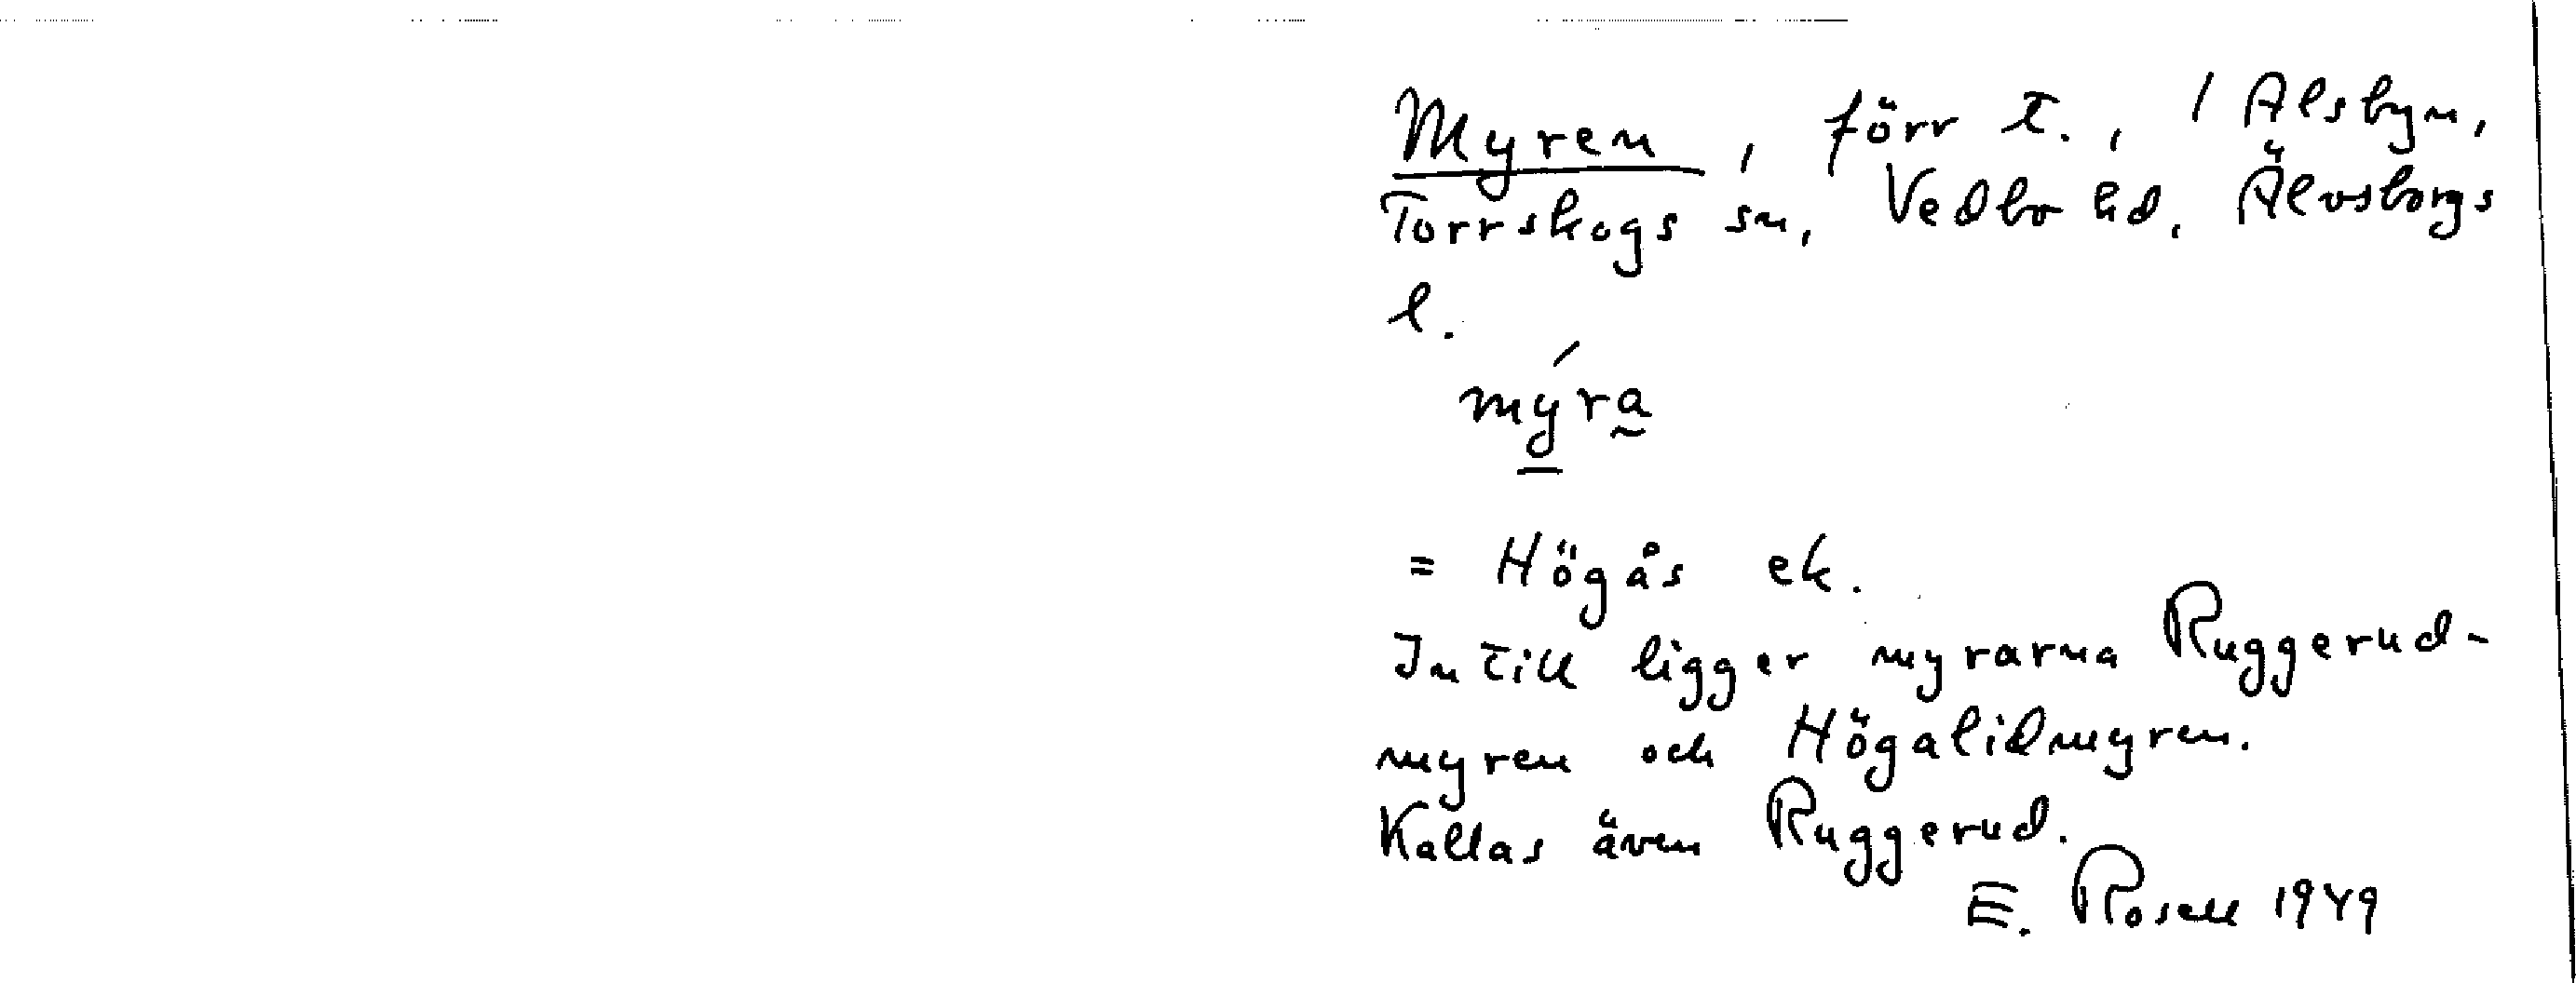 Myren, förr t., / Alsbyn,
Torrskogs sn, Vedbo hd, Älvsborgs
l.
mýra
= Högås ek.
Intill ligger myrarna Ruggerud-
myren och Högalidmyren.
Kallas även Ruggerud.
E. Rosell 1949